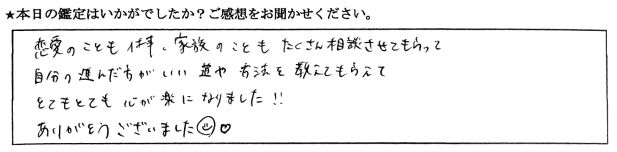 ★本日の鑑定はいかがでしたか？ご感想をお聞かせください。
恋愛のことも仕事、家族のことも たくさん相談させてもらって
自分の進んだ方がいい 道や 方法を 教えてもらえて
とてもとても 心が楽に なりました!!
ありがとうございました☺♡